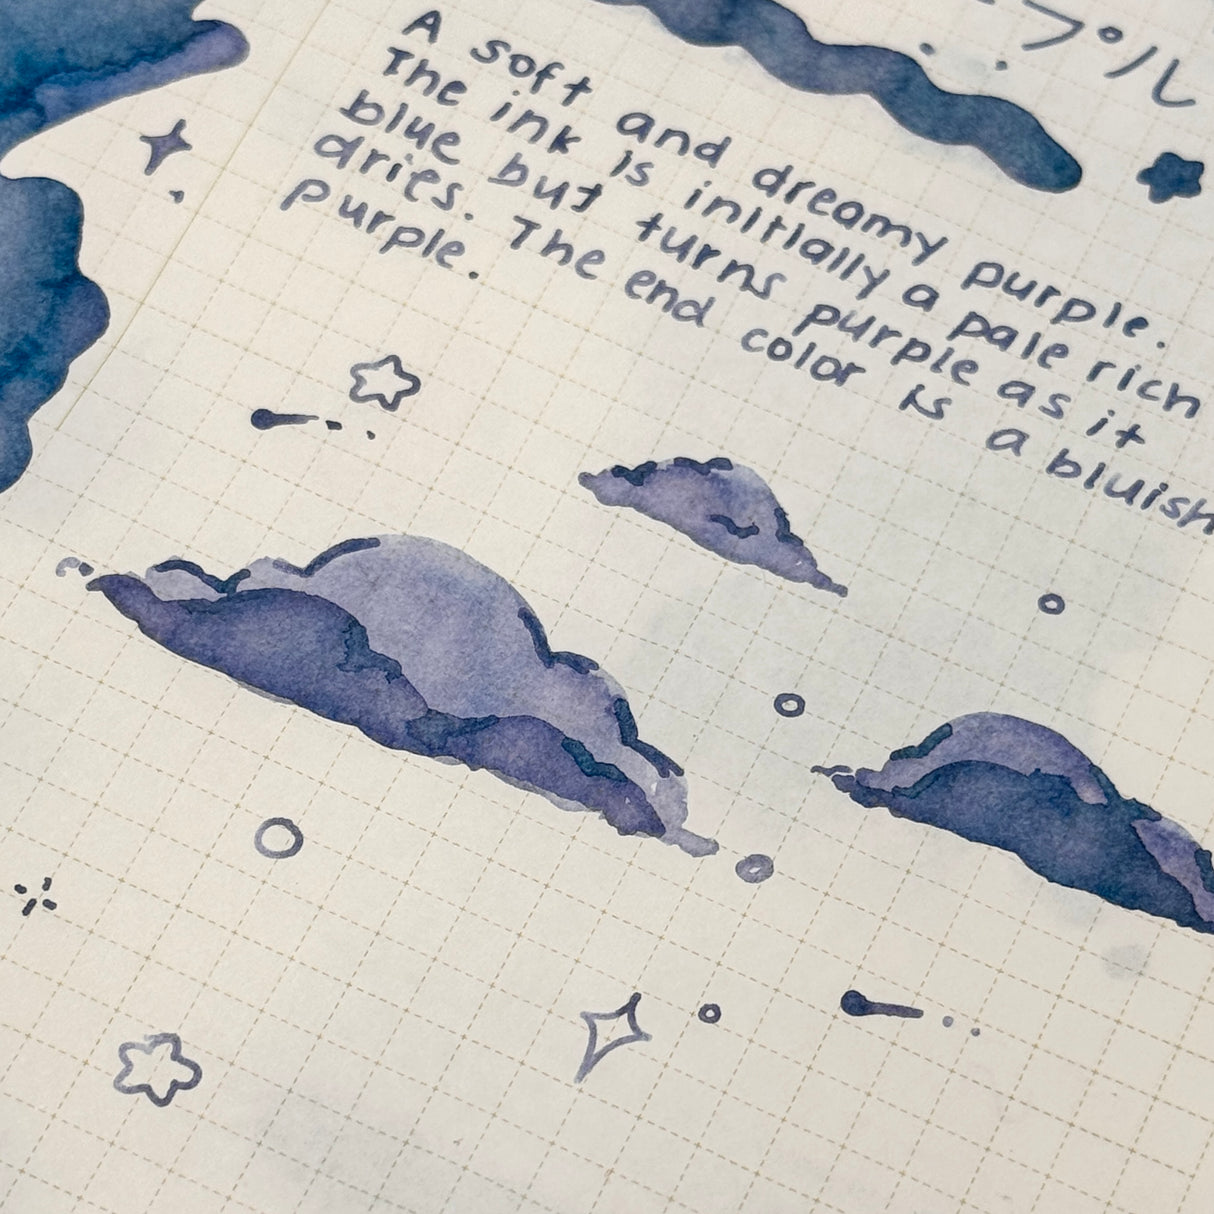 プル
A soft and dreamy purple.
The ink is initially a pale rich
blue but turns purple as it
dries. The end color is a bluish
purple.